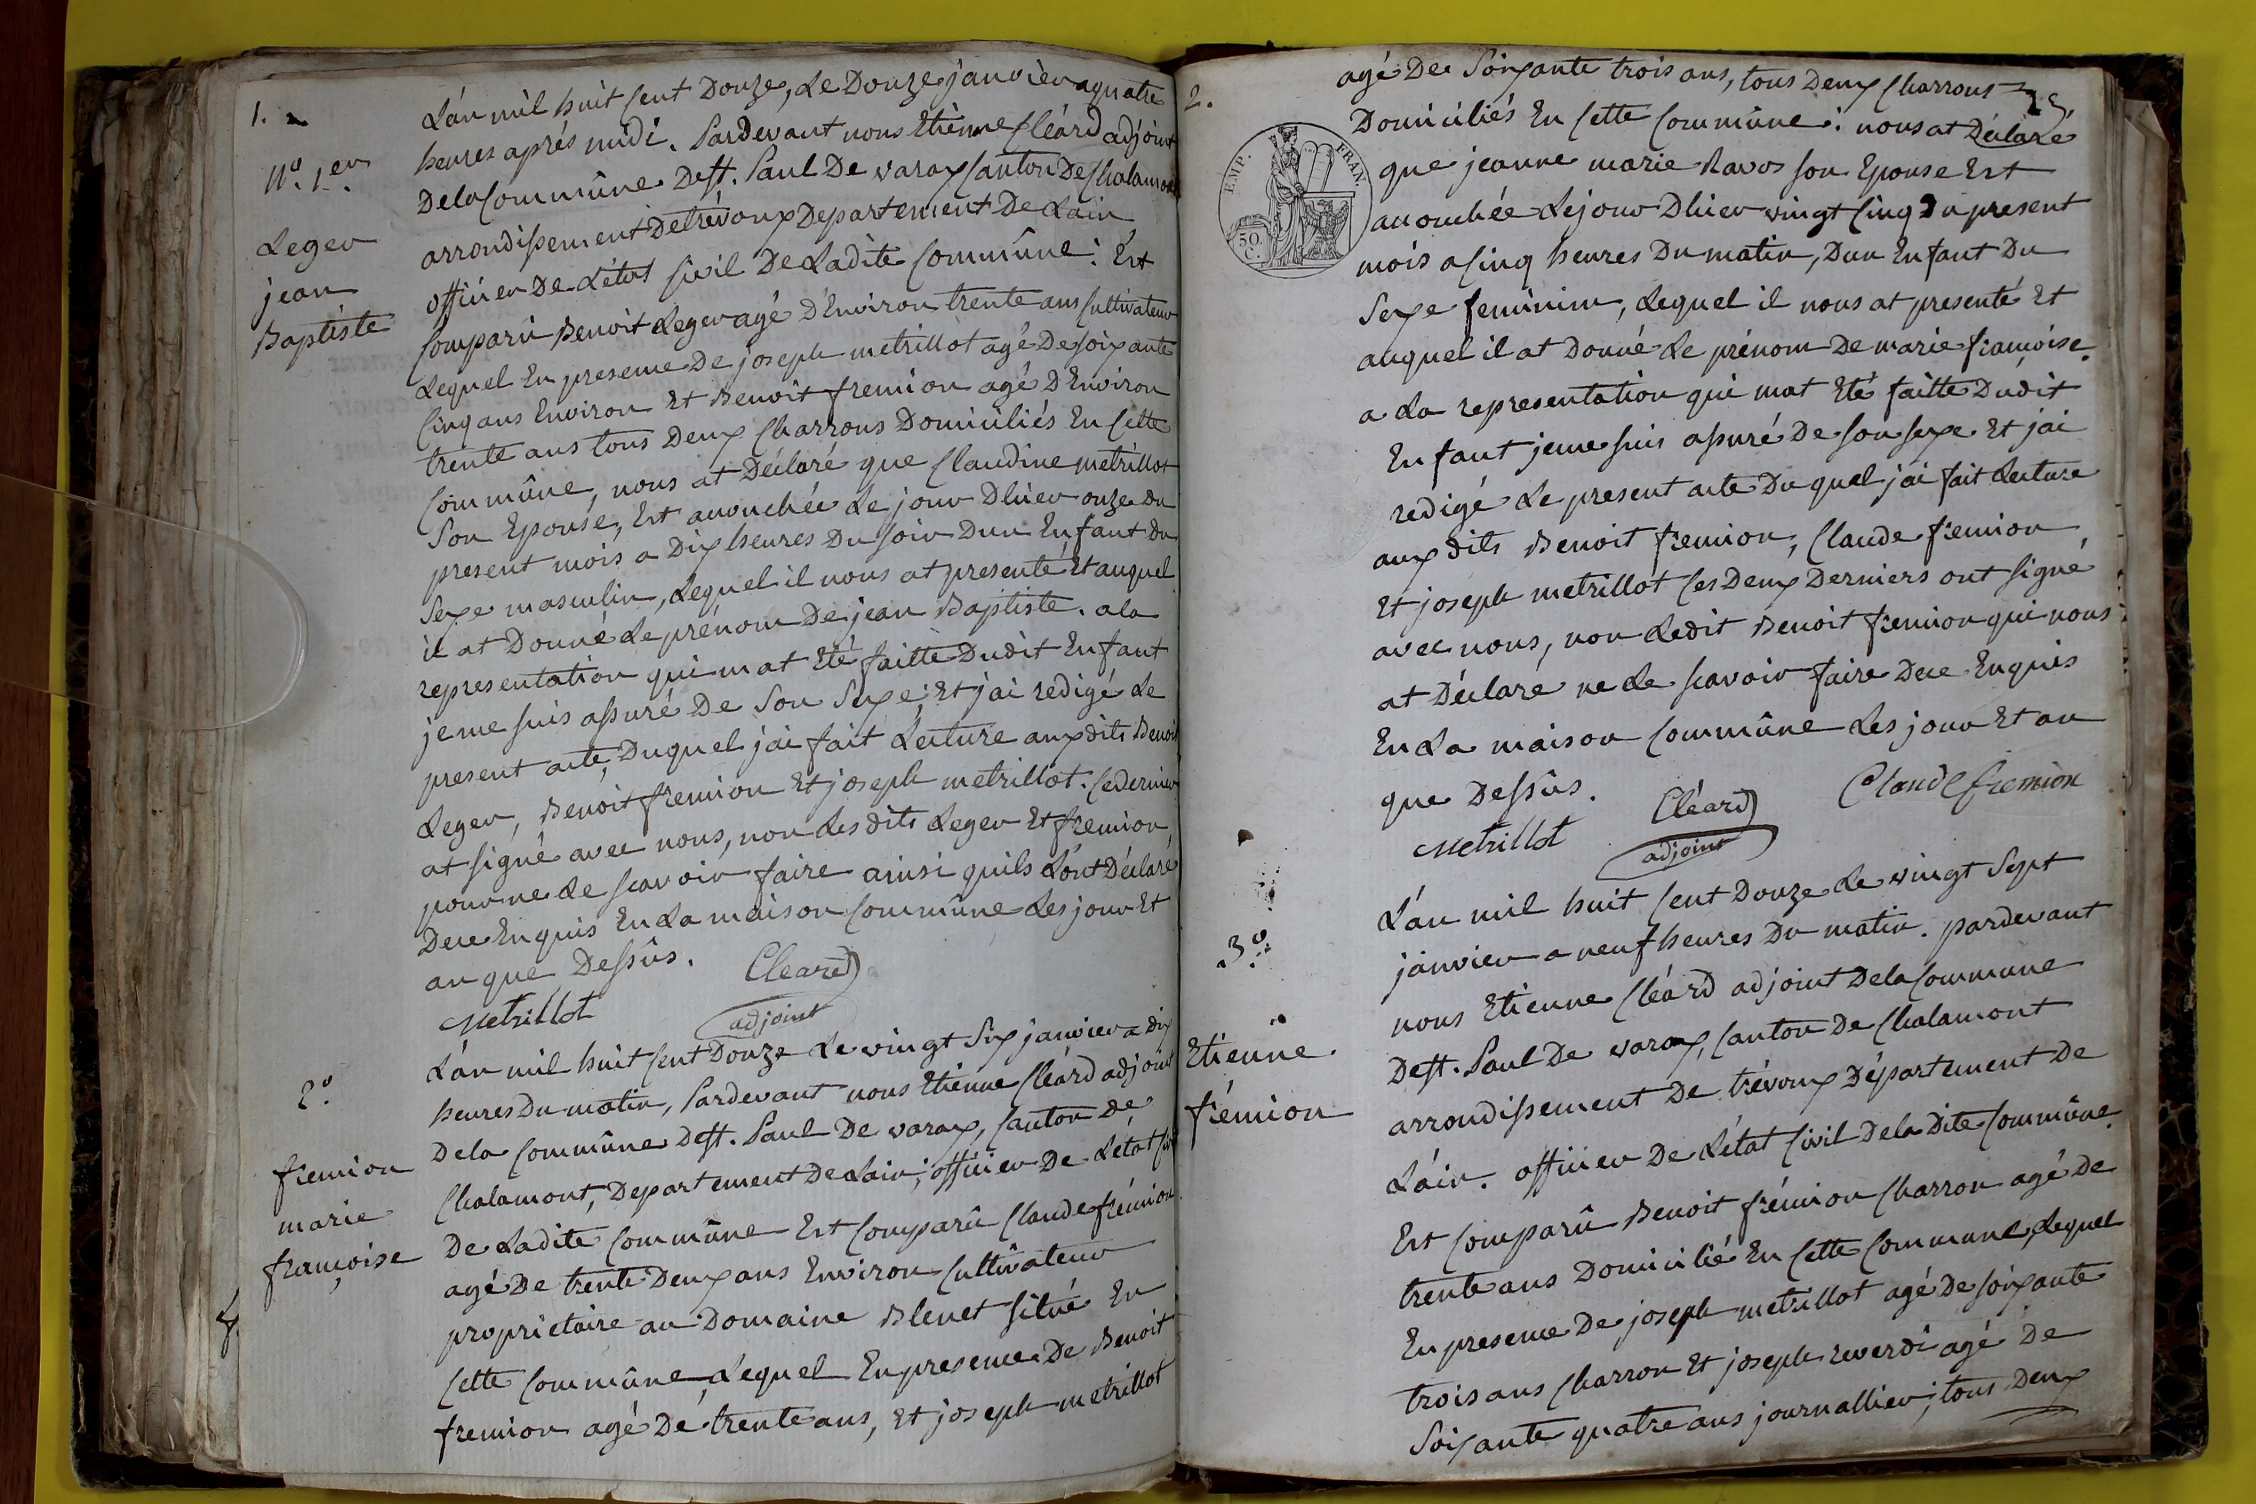 1.
N.º 1.er
Leger
jean
Baptiste
L'an mil huit cent Douze, Le Douze janvier a quatre
heures aprés midi. Pardevant nous Etienne Cléard adjoint
De la Commûne De st. Paul De varax Canton De Chalamont
arrondissement De trévoux Departement De Lain
officier De L'état Civil De Ladite Commûne : Est
Comparû Benoit Leger agé D'Environ trente ans Cultivateur
Lequel En presence De joseph metrillot agé De soixante
Cinq ans Environ Et Benoit fremion agé D'Environ
trente ans tous Deux Charrons Domiciliés En Cette
Commûne, nous at Déclaré que Claudine metrillot
Son Epouse, Est accouchée Le jour Dhier onze du
present mois a Dix heures Du soir Dun Enfant du
Sexe masculin, Lequel il nous at presenté Et auquel
il at Donné Le prénom De jean Baptiste. a la
representation qui m'at Eté faitte Dudit Enfant
je me suis assuré De Son Sexe ; Et j'ai redigé Le
present acte, Duquel j'ai fait Lecture aux dits Benoit
Leger, Benoit fremion Et joseph metrillot. Ce dernier
at signé avec nous, non Les dits Leger Et fremion,
pour ne Le scavoir faire ainsi quils L'ont Déclaré
De ce Enquis En La maison Commûne Les jour Et
an que Dessûs. Cleard
Metrillot adjoint
2.º
fremion
marie
françoise
L'an mil huit Cent Douze Le vingt Six janvier a dix
heures Du matin, Pardevant nous Etienne Cléard adjoint
De la Commûne De st. Paul De varax, Canton de
Chalamont, Departement De Lain ; officier De L'état Civil
De Ladite Commûne Est Comparû Claude frémion
agé De trente Deux ans Environ Cultivateur
proprietaire au Domaine Blenet situé En
Cette Commûne, Lequel En presence De Benoit
fremion agé Dé trente ans, Et joseph metrillot
2.
EMP. FRAN.
50. C.
agé De Soixante trois ans, tous Deux Charrons
Domiciliés En Cette Commûne : nous at Déclaré
que jeanne marie Ravos son Epouse Est
accouchée Le jour Dhier vingt Cinq Du present
mois a Cinq heures Du matin, Dun Enfant Du
Sexe feminin, Lequel il nous at presenté Et
auquel il at Donné Le prénom De marie françoise.
a La representation qui m'at Eté faitte Dudit
Enfant je me suis assuré De son sexe Et j'ai
redigé Le present acte Du quel j'ai fait Lecture
aux dits Benoit fremion, Claude fremion
Et joseph metrillot Ces Deux Derniers ont signé
avec nous, non Ledit Benoit fremion qui nous
at Déclaré ne Le scavoir faire De ce Enquis
En La maison Commûne Les jour Et an
que Dessûs. Cléard Claude fremion
Metrillot adjoint
3.º
Etienne
frémion
L'an mil huit Cent Douze Le vingt Sept
janvier a neuf heures Du matin. pardevant
nous Etienne Cléard adjoint De la Commune
De st. Paul De varax, Canton De Chalamont
arrondissement De trévoux Département De
L'ain. officier De L'état Civil De la Dite Commûne.
Est Comparû Benoit frémion Charron agé De
trente ans Domicilié En Cette Commune, Lequel
En presence De joseph metrillot agé De soixante
trois ans Charron Et joseph reverdi agé De
Soixante quatre ans journallier ; tous Deux